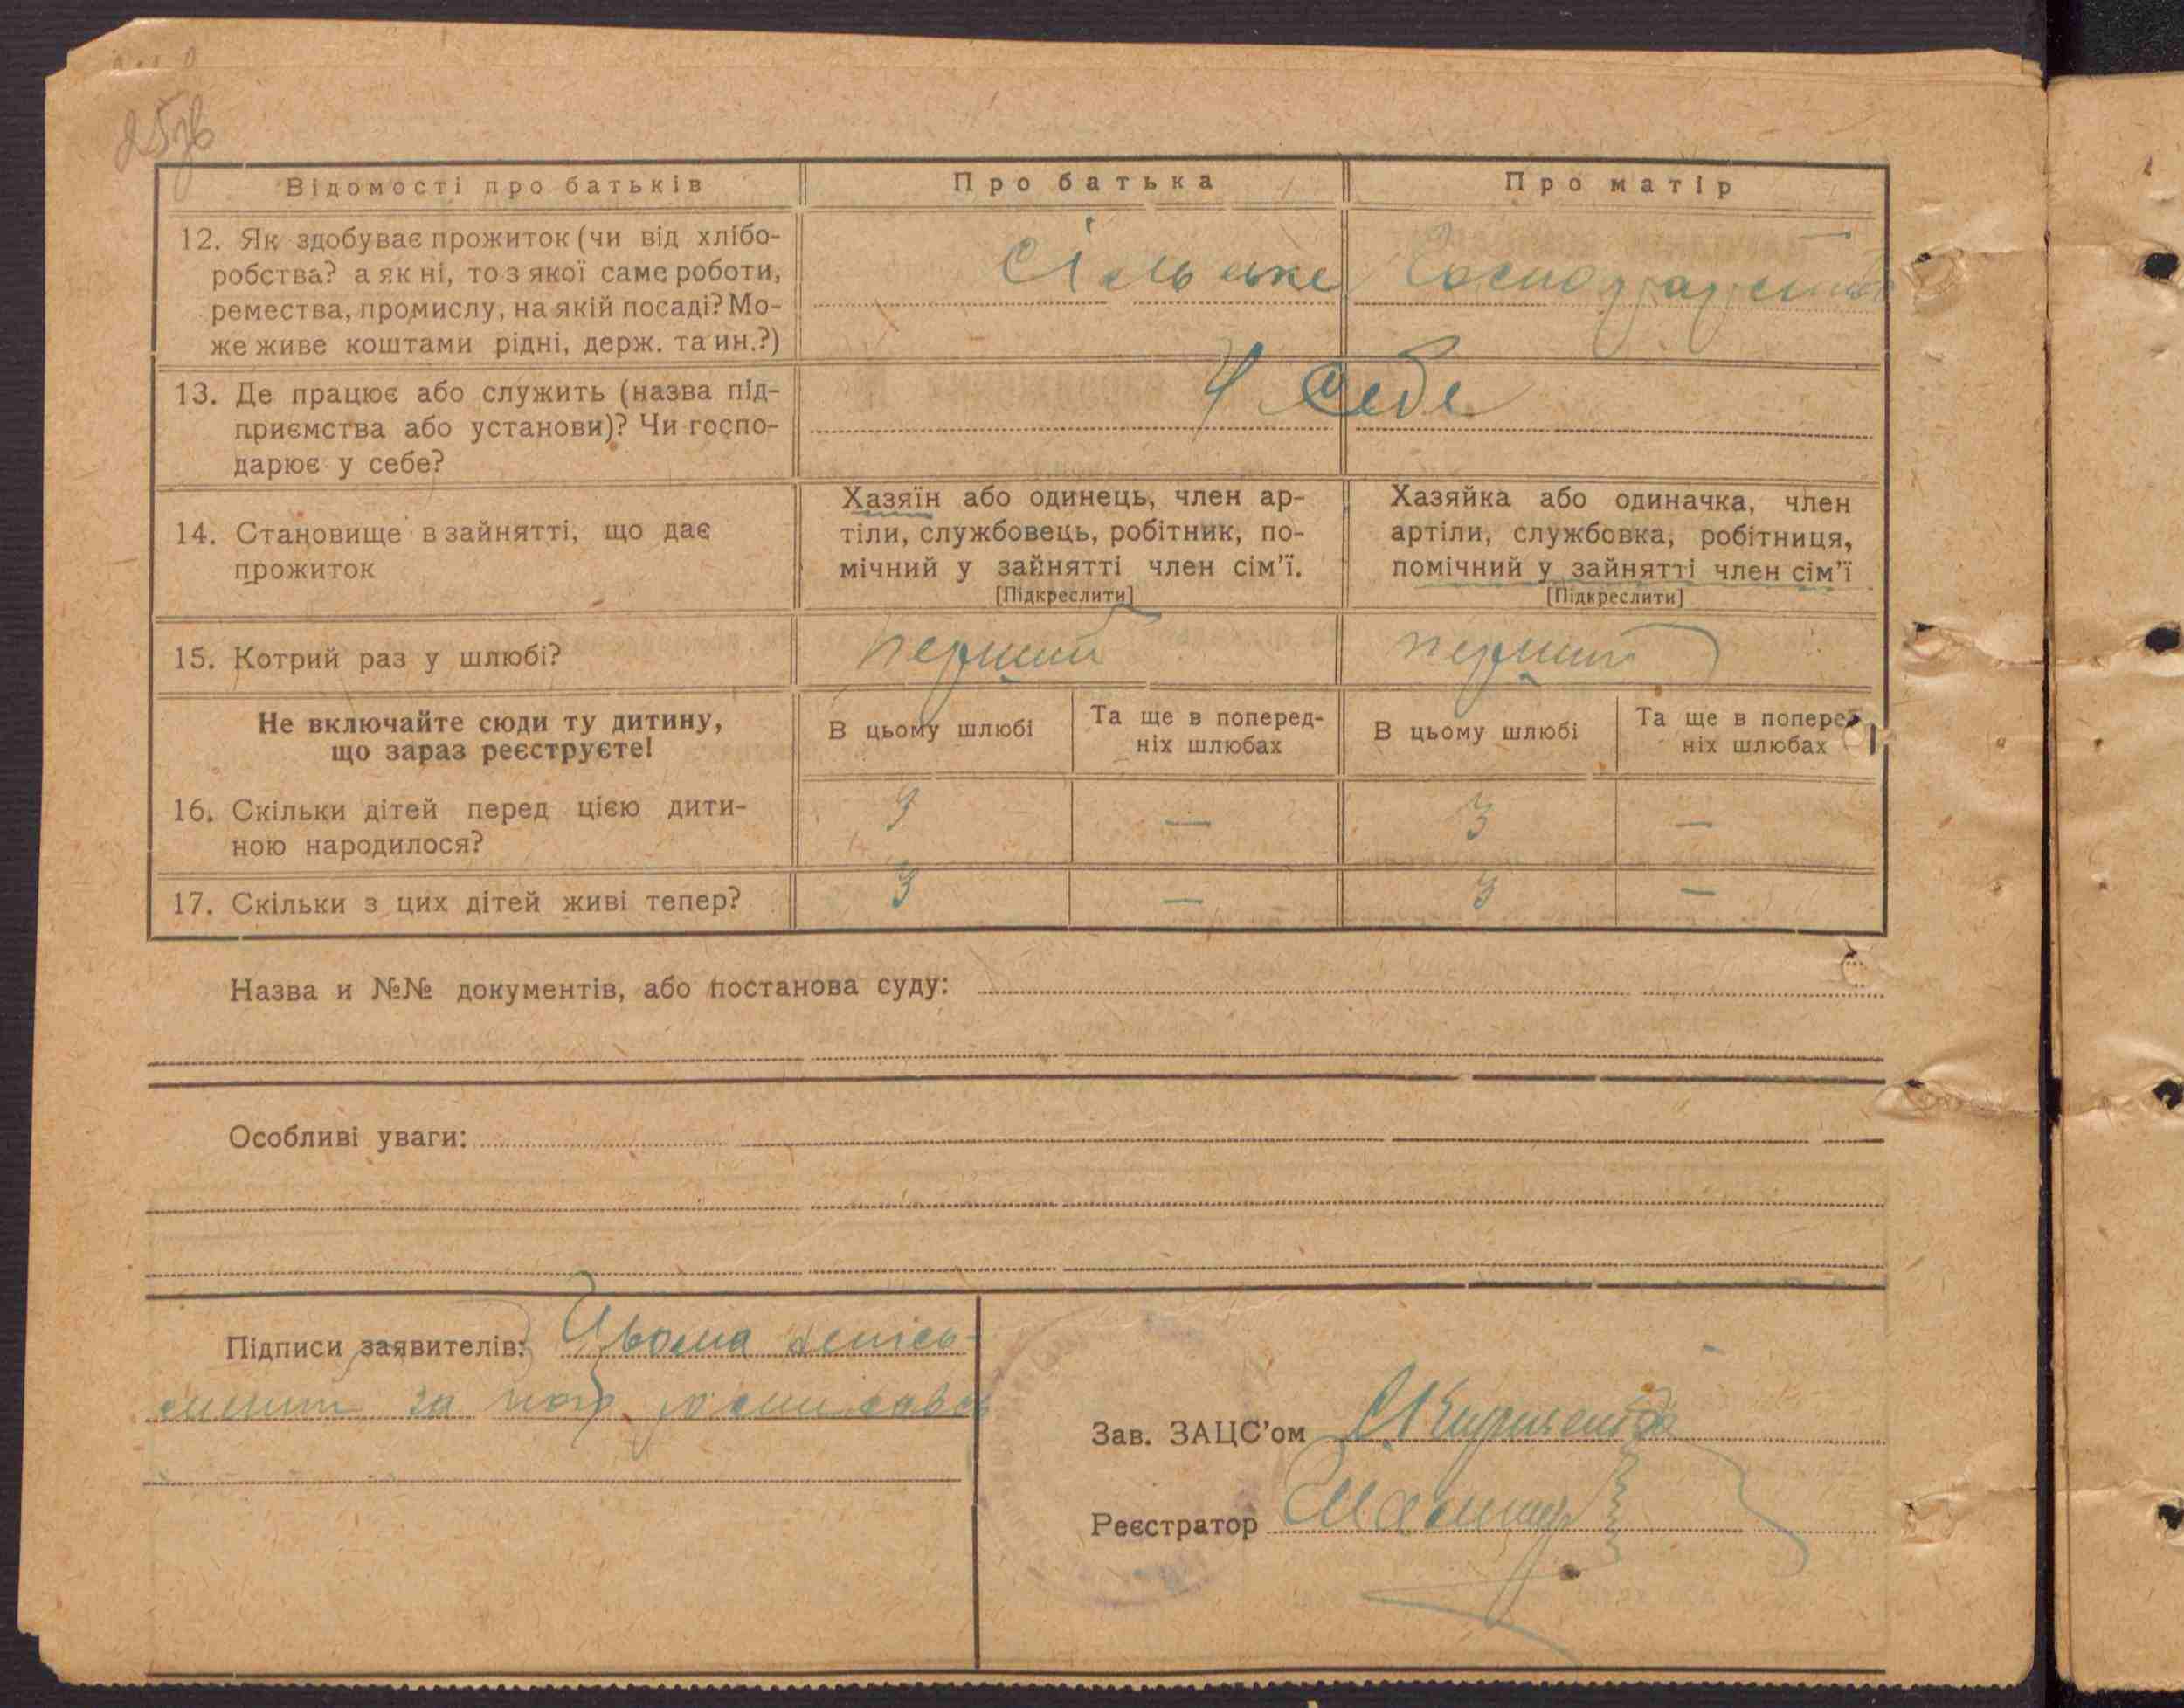 25зв
Відомості про батьків
Про батька
Про матір
12. Як здобуває прожиток (чи від хлібо-
робства? а як ні, то з якої саме роботи,
ремества, промислу, на якій посаді? Мо-
же живе коштами рідні, держ. та ин.?)
Сільське Господарство
13. Де працює або служить (назва під-
приємства або установи)? Чи госпо-
дарює у себе?
У себе
14. Становище в зайнятті, що дає
прожиток
Хазяїн або одинець, член ар-
тіли, службовець, робітник, по-
мічний у зайнятті член сім’ї.
[Підкреслити]
Хазяйка або одиначка, член
артіли, службовка, робітниця,
помічний у зайнятті член сім’ї
[Підкреслити]
15. Котрий раз у шлюбі?
перший
перший
Не включайте сюди ту дитину,
що зараз реєструєте!
В цьому шлюбі
Та ще в поперед-
ніх шлюбах
В цьому шлюбі
Та ще в поперед-
ніх шлюбах
16. Скільки дітей перед цією дити-
ною народилося?
3 — 3 —
17. Скільки з цих дітей живі тепер?
3 — 3 —
Назва и №№ документів, або постанова суду:
Особливі уваги:
Підписи заявителів:
за
Зав. ЗАЦС’ом
Реєстратор